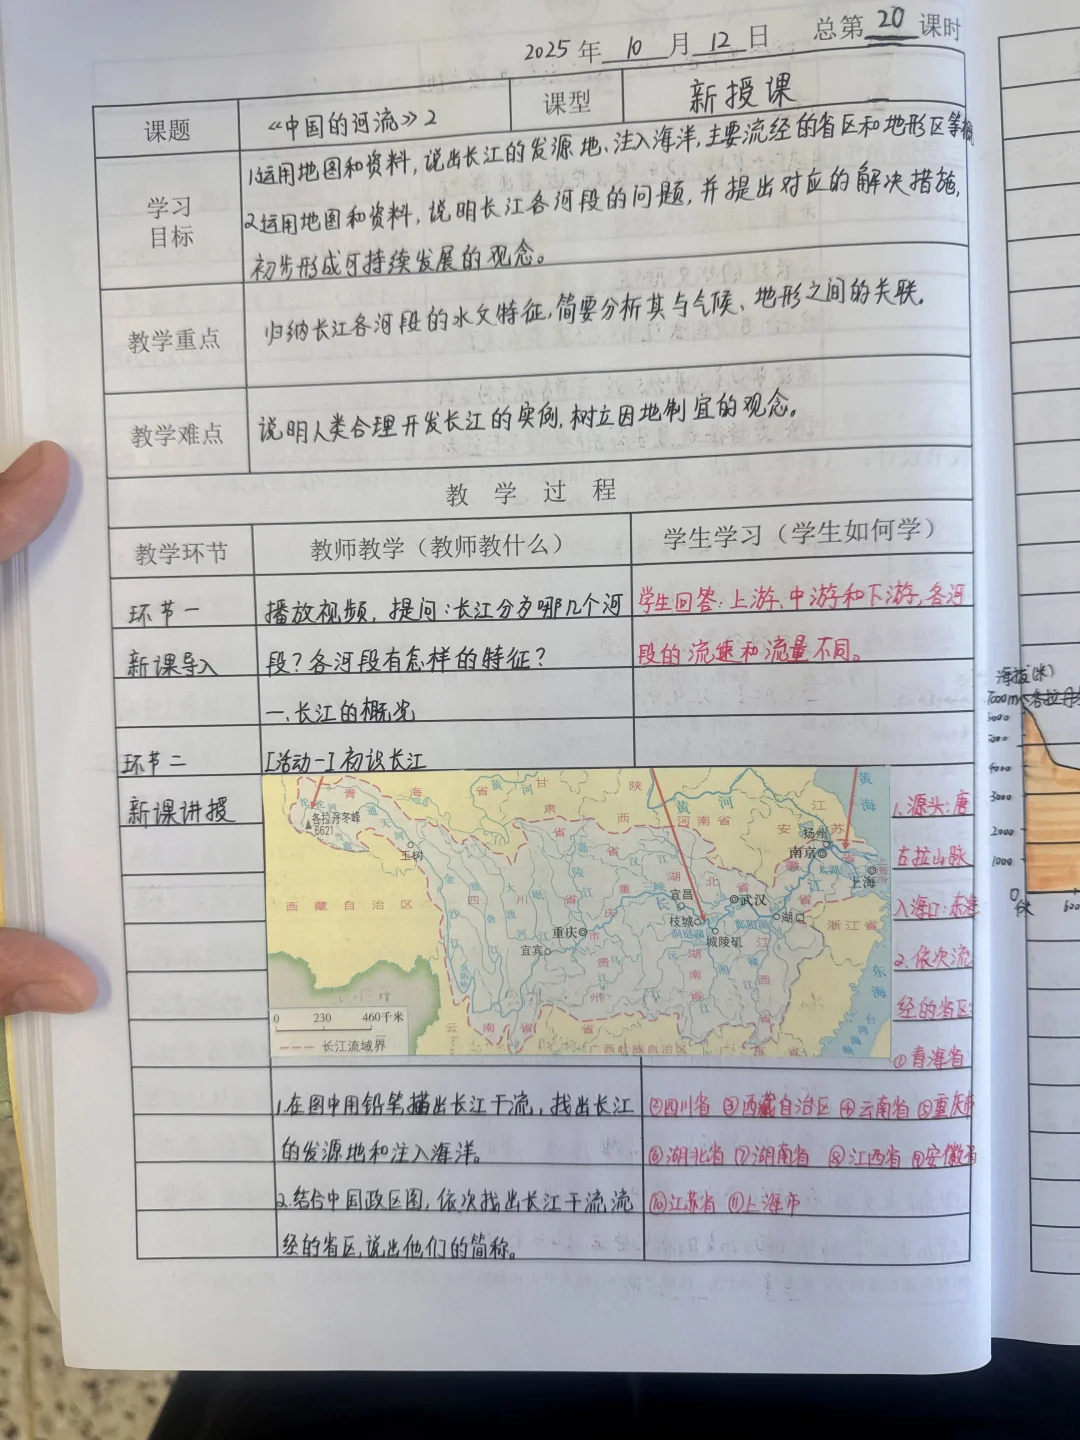 2025年 10 月 12 日 总第 20 课时
课题 《中国的河流》2 课型 新授课
学习目标
1.运用地图和资料，说出长江的发源地、注入海洋，主要流经的省区和地形区等概
2.运用地图和资料，说明长江各河段的问题，并提出对应的解决措施，
初步形成可持续发展的观念。
教学重点 归纳长江各河段的水文特征，简要分析其与气候、地形之间的关联。
教学难点 说明人类合理开发长江的实例，树立因地制宜的观念。
教 学 过 程
教学环节 教师教学（教师教什么） 学生学习（学生如何学）
环节一 播放视频，提问：长江分为哪几个河 学生回答：上游、中游和下游，各河
新课导入 段？各河段有怎样的特征？ 段的流速和流量不同。
一、长江的概况
环节二 [活动一] 初识长江
新课讲授
青 海 省
甘 肃 省
陕 西 省
黄 河
河南省
江 苏 省
安 徽 省
黄 海
沱沱河
通天河
各拉丹冬峰
6621
玉树
扬州
南京
上海
西藏自治区
金沙江
四 川 省
大渡河
岷江
嘉陵江
重庆市
重庆
宜宾
汉江
湖北省
三峡
长江
宜昌
枝城
武汉
城陵矶
洞庭湖
湖口
鄱阳湖
太湖
浙江省
贵州省
湖南省
江西省
沅江
湘江
赣江
东海
台湾海峡
云南省
广西壮族自治区
0 230 460千米
长江流域界
1.源头：唐
古拉山脉
入海口：东海
2.依次流
经的省区：
①青海省
1.在图中用铅笔描出长江干流，找出长江 ②四川省 ③西藏自治区 ④云南省 ⑤重庆市
的发源地和注入海洋。 ⑥湖北省 ⑦湖南省 ⑧江西省 ⑨安徽省
2.结合中国政区图，依次找出长江干流流 ⑩江苏省 ⑪上海市
经的省区，说出他们的简称。
海拔(米)
7000m 各拉丹冬
6000
5000
4000
3000
2000
1000
0